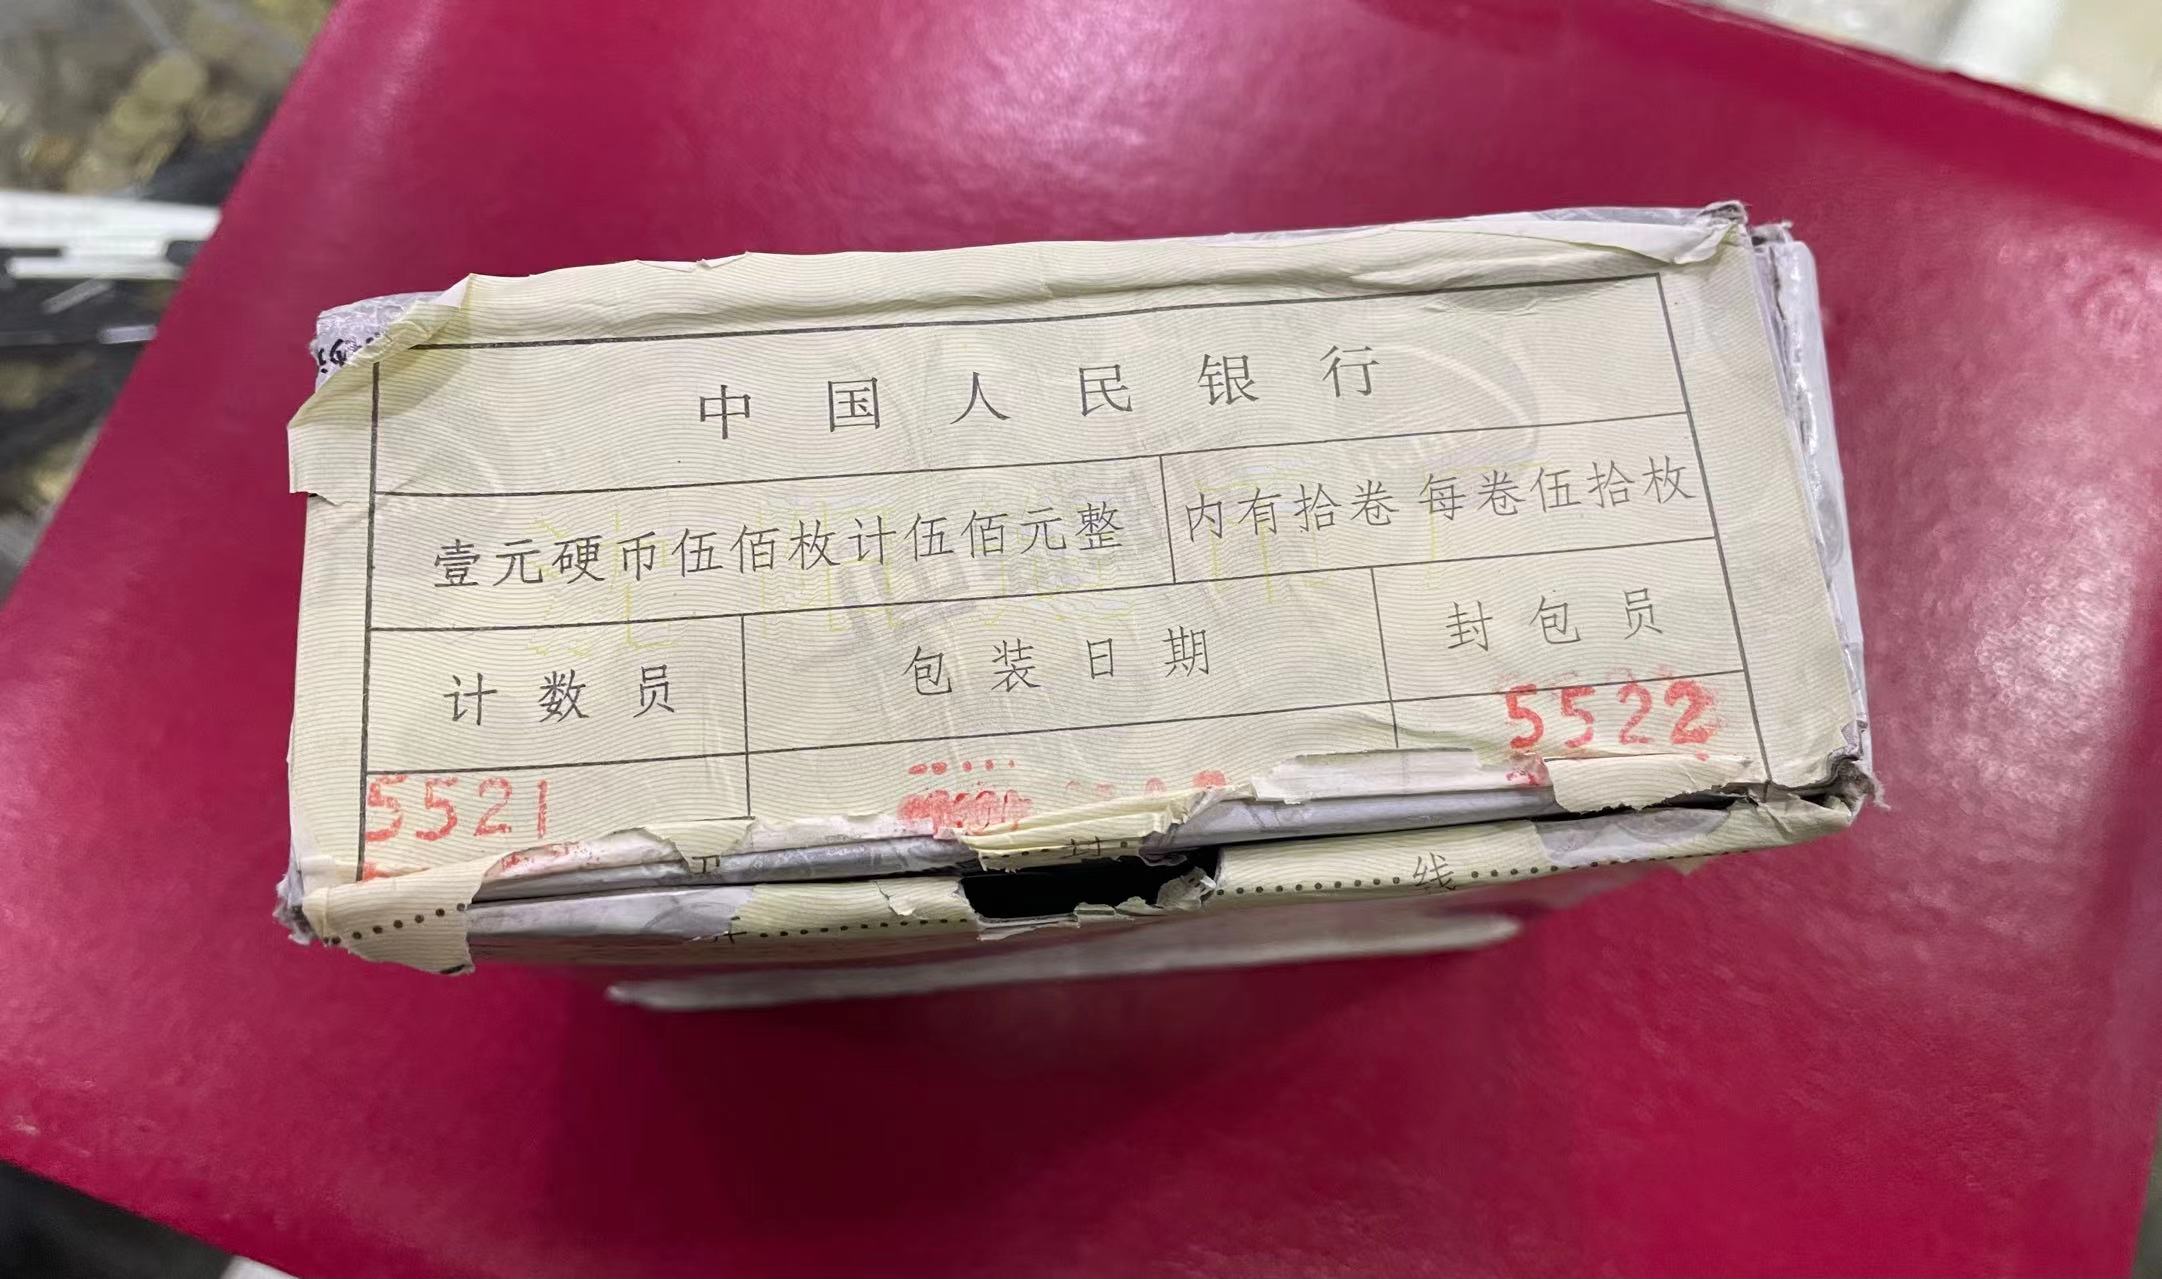 中国人民银行
壹元硬币伍佰枚计伍佰元整 内有拾卷 每卷伍拾枚
计数员 包装日期 封包员
5521 5522
线